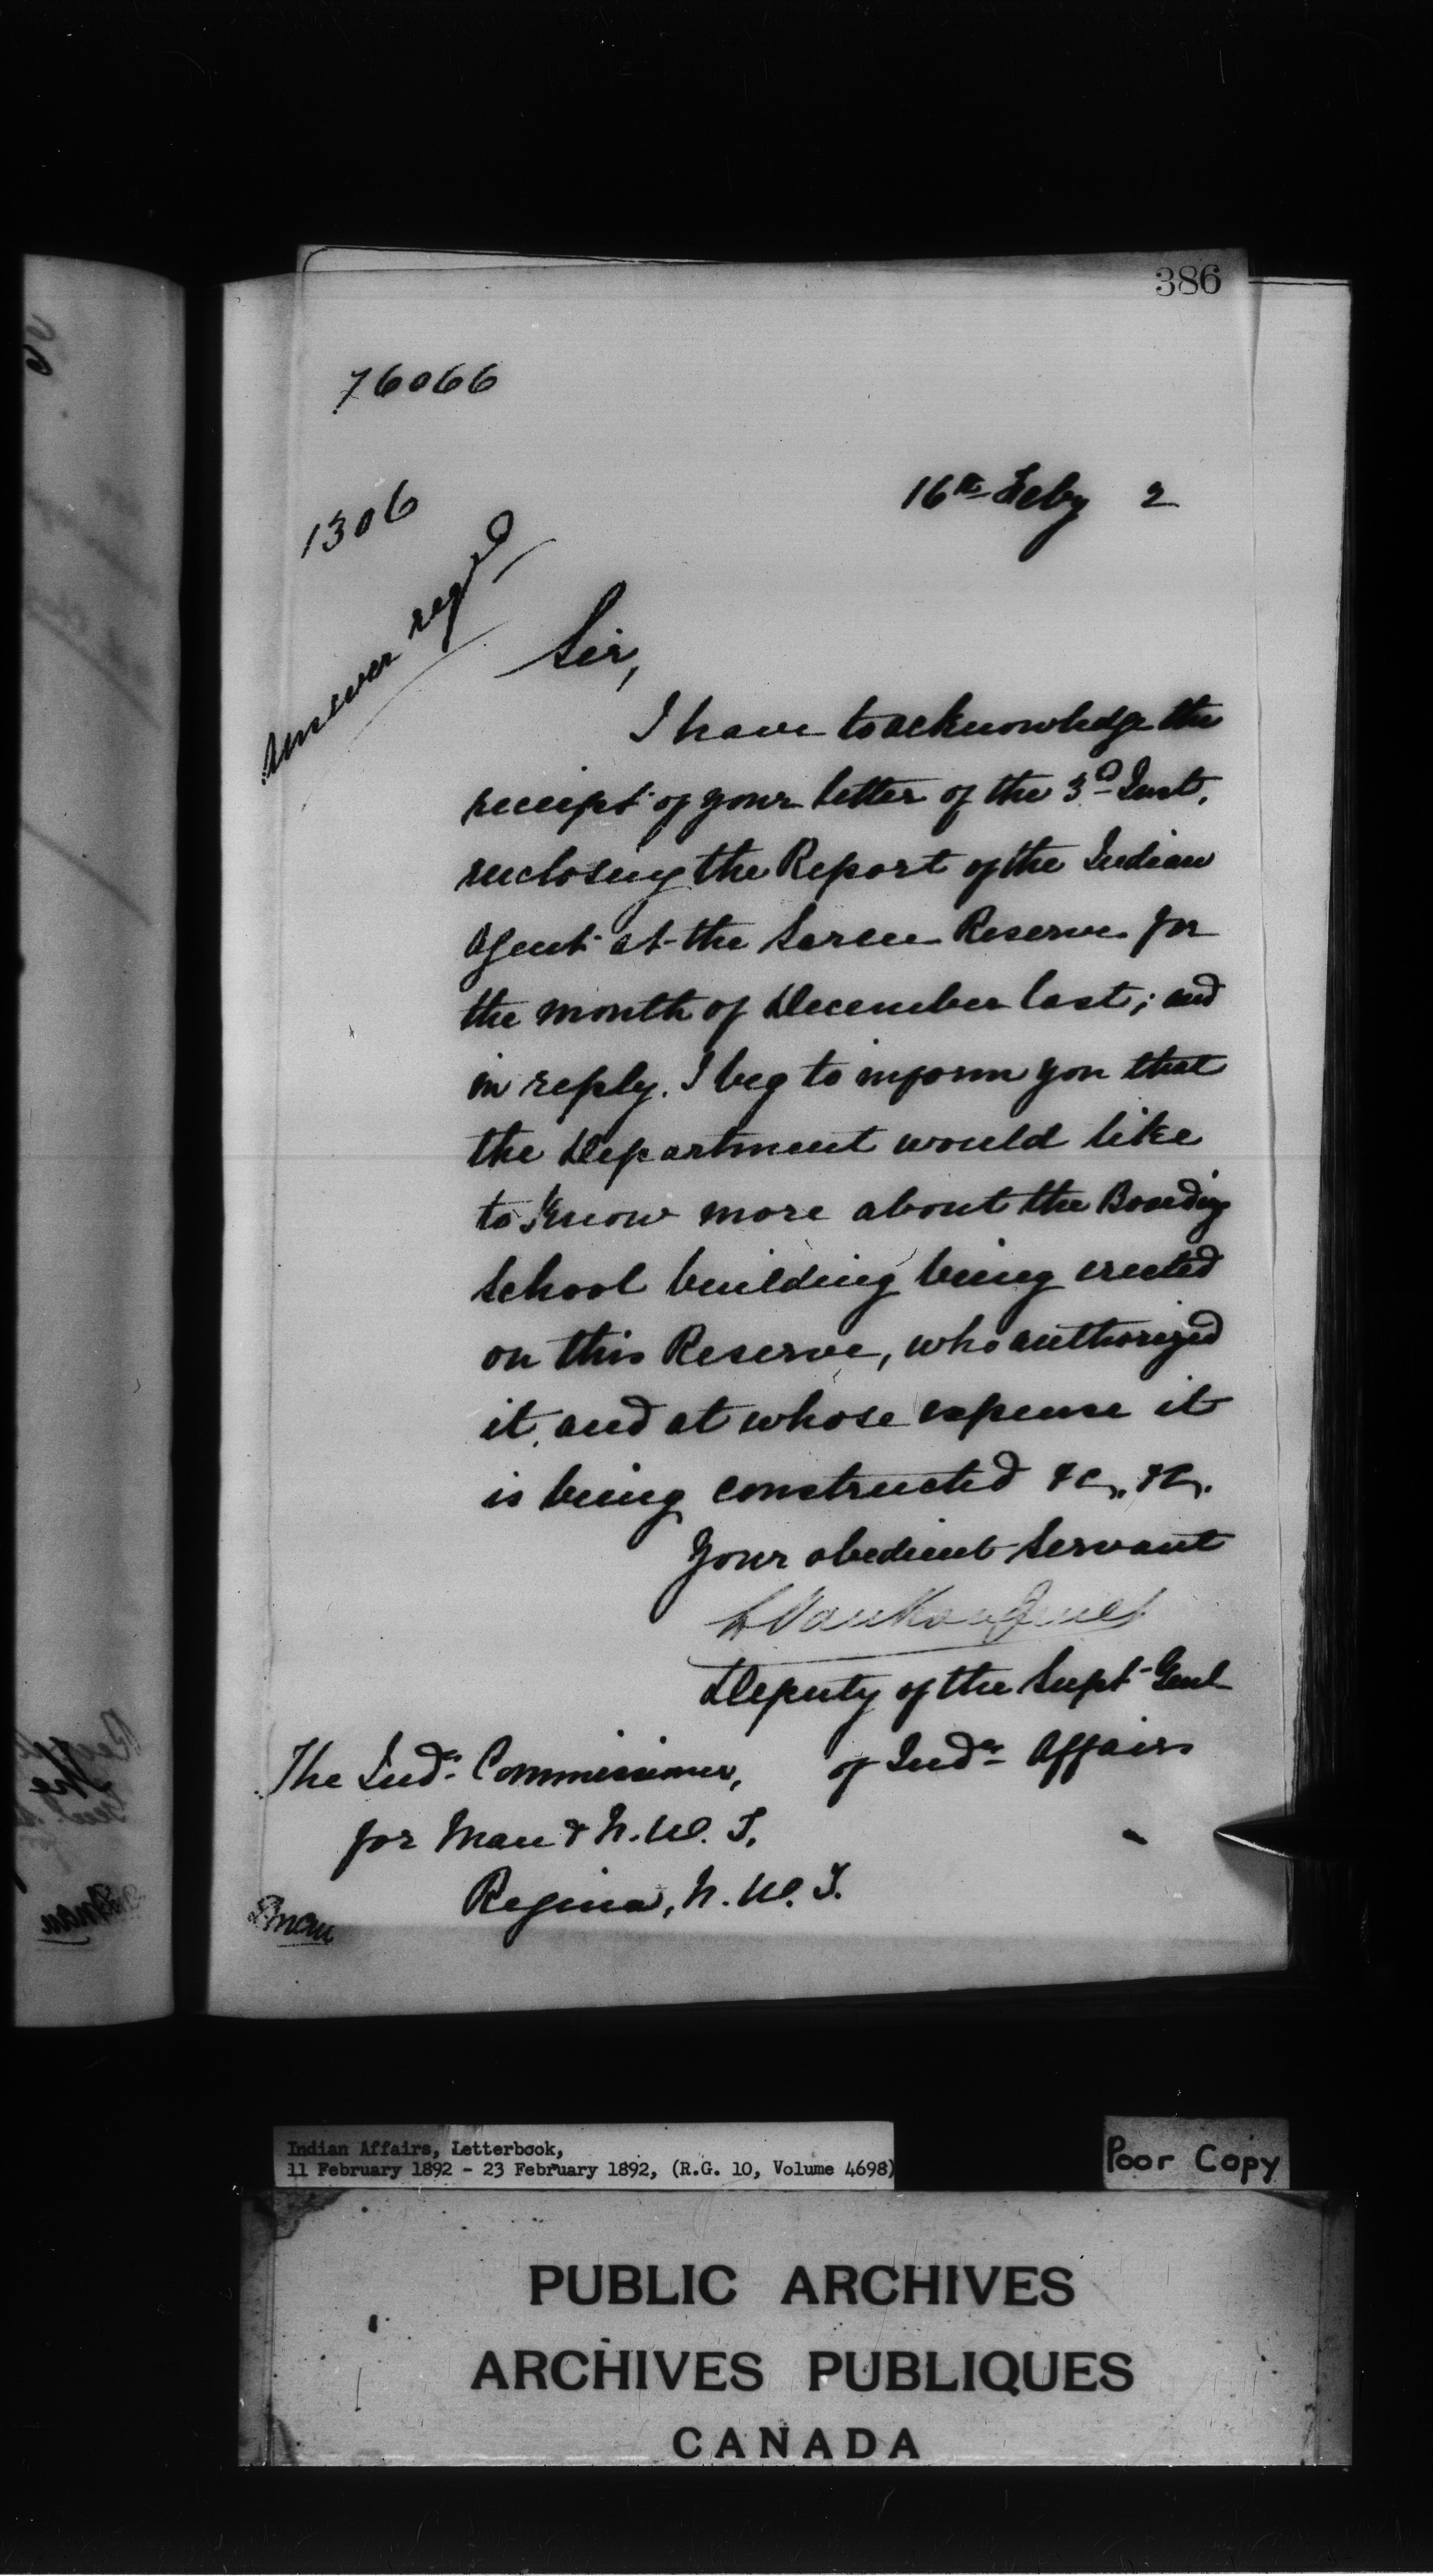 386
76066
1306
16th Feby 2
Answer reqd
Sir,
I have to acknowledge the
receipt of your letter of the 3d Inst.
enclosing the Report of the Indian
Agent at the Sarcee Reserve for
the month of December last; and
in reply. I beg to inform you that
the Department would like
to know more about the Boarding
School building being erected
on this Reserve, who authorized
it, and at whose expense it
is being constructed &c,. &c,.
Your obedient Servant
L Vankoughnet
Deputy of the Supt Genl
of Indn Affairs
The Indn Commissioner,
for Man & N.W.T.
Regina, N.W.T.
Indian Affairs, Letterbook,
11 February 1892 - 23 February 1892, (R.G. 10, Volume 4698)
Poor Copy
PUBLIC ARCHIVES
ARCHIVES PUBLIQUES
CANADA